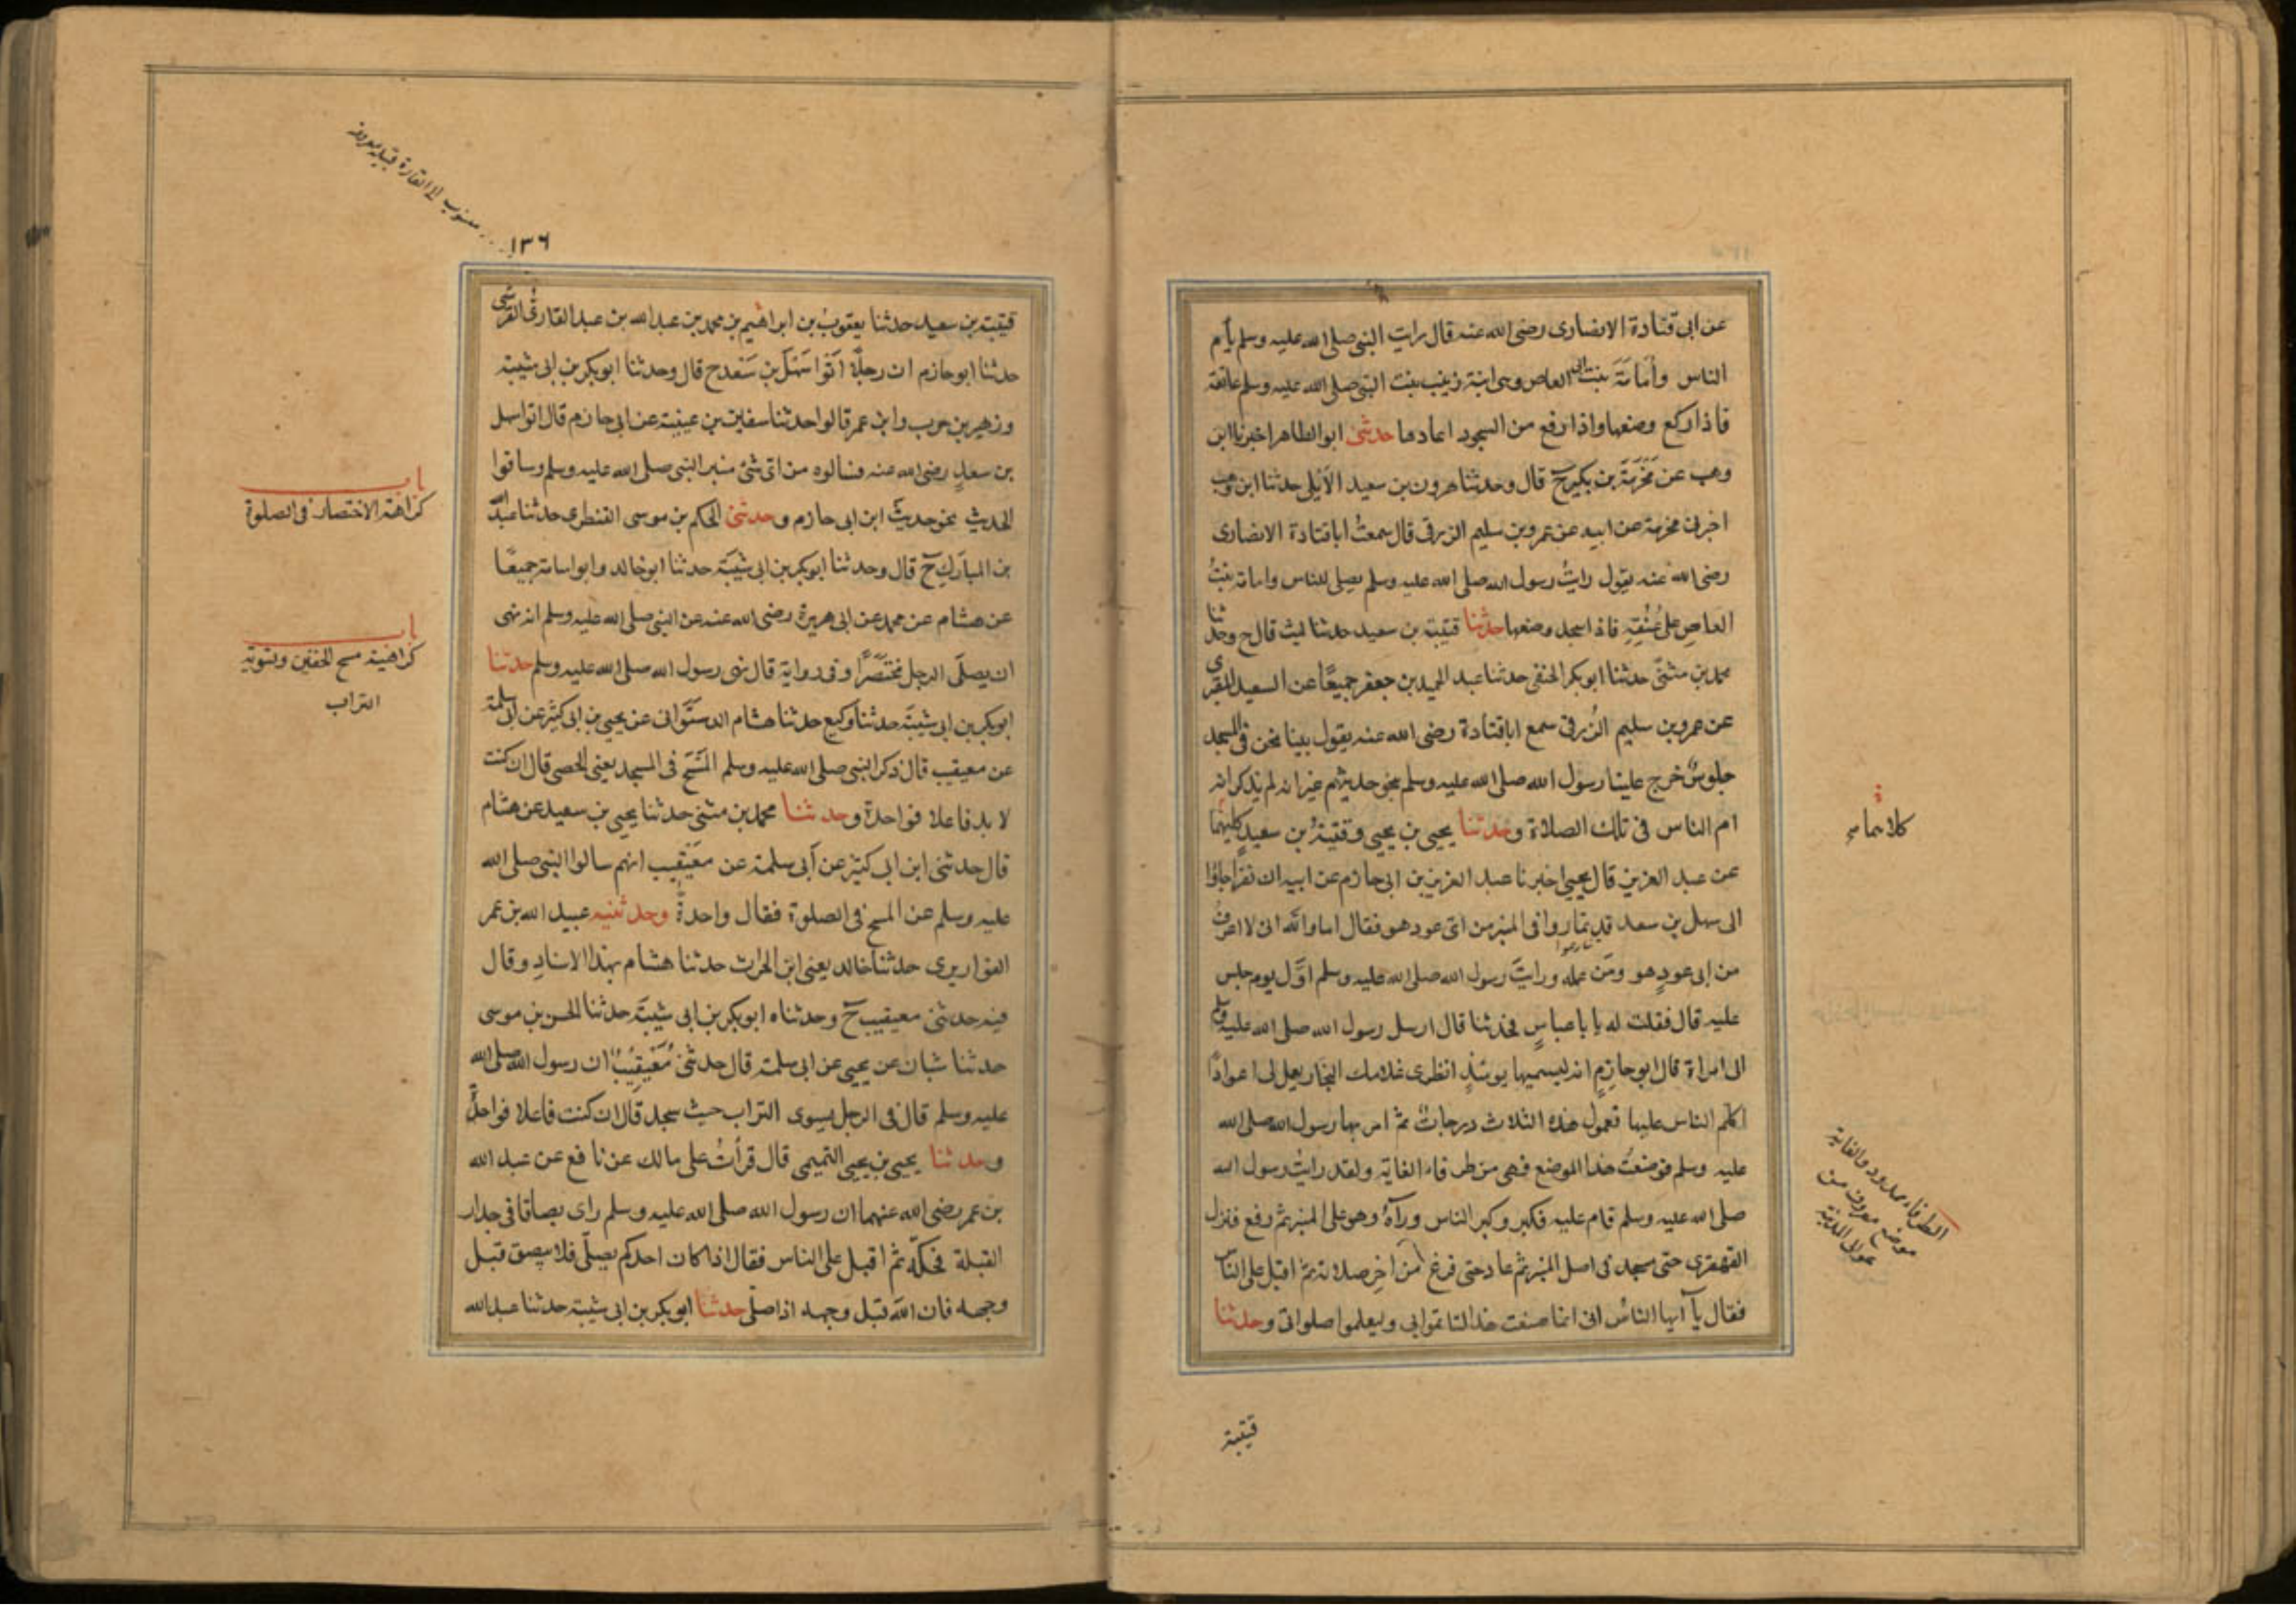 عن ابى قتادة الانصارى رضى الله عنه قال رايت النبى صلى الله عليه وسلم يأم
الناس وأُمَامَةَ بنت ابى العاص وهى ابنة زينب بنت النبى صلى الله عليه وسلم عاتقه
فاذا ركع وضعها واذا رفع من السجود اعادها حدثنى ابو الطاهر اخبرنا ابن
وهب عن مَخْرَمَةَ بن بكير ح قال وحدثنا هرون بن سعيد الاَيْلى حدثنا ابن وهب
اخبرنى مخرمة عن ابيه عن عمرو بن سليم الزرقى قال سمعتُ ابا قتادة الانصارى
رضى الله عنه يقول رايتُ رسول الله صلى الله عليه وسلم يصلى للناس وامامة بنتُ
العاصِ على عُنُقِهِ فاذا سجد وضعها حدثنا قتيبة بن سعيد حدثنا ليث قال ح وحدثنا
محمد بن مثنّى حدثنا ابو بكر الحنفى حدثنا عبد الحميد بن جعفر جميعًا عن السعيد المقبرى
عن عمرو بن سليم الزُرقى سمع ابا قتادة رضى الله عنه يقول بينا نحن فى المسجد
جلوسٌ خرج علينا رسول الله صلى الله عليه وسلم بنحو حديثهم غير انه لم يذكر انه
ام الناس فى تلك الصلاة وحدثنا يحيى بن يحيى وقتيبةُ بن سعيدٍ كليهما
عن عبد العزيز قال يحيى اخبرنا عبد العزيز بن ابى حازم عن ابيه ان نفرا جاؤا
الى سهل بن سعد قد تماروا فى المنبر من اىّ عود هو فقال اما والله انى لا اعرفُ
من اى عودٍ هو ومَن عمله ورايتَ رسول الله صلى الله عليه وسلم اوّل يوم جلس
عليه قال فقلت له يا با عباسٍ فحدثنا قال ارسل رسول الله صلى الله عليه وسلم
الى امراة قال ابو حازمٍ انه ليسميها يومئذٍ انظرى غلامك النجار يعمل لى اعوادًا
اكلّم الناس عليها فعمول هذه الثلاث درجاتٌ ثم امر بها رسول الله صلى الله
عليه وسلم فوضعتْ هذا الموضع فهى من طرفاء الغاية ولقد رايتُ رسول الله
صلى الله عليه وسلم قام عليه فكبر وكبر الناس ورآهُ وهو على المنبر ثم رفع فنزل
القهقرى حتى سجد فى اصل المنبر ثم عاد حتى فرغ من آخِرِ صلاته ثم اقبل على الناس
فقال يآ ايها الناسُ انى انما صنعت هذا لتاتموا بى وليعلموا صلواتى وحدثنا
كلاهما صح
الطرفاء ممدود والغاية
موضع معروف من
عوالى المدينة
قتيبة
١٣٦
منسوب الى القارة قبيلة معروفة
قتيبة بن سعيد حدثنا يعقوبُ بن ابراهيم بن محمد بن عبد الله بن عبد القارىُّ القرشى
حدثنا ابو حازم ان رجلًا اَتَوا سَهْلَ بن سَعْدح قال وحدثنا ابو بكر بن ابى شيبة
وزهير بن حرب وابن عمر قالوا حدثنا سفيان بن عيينة عن ابى حازم قال اتوا سهل
بن سعدٍ رضى الله عنه فسالوه من اىّ شئ منبر النبى صلى الله عليه وسلم وساقوا
الحديث نحو حديث ابن ابى حازم وحدثنى الحكم بن موسى القنطرى حدثنا عبد الله
بن المبارَكِ ح قال وحدثنا ابو بكر بن ابى شيبَة حدثنا ابو خالد وابو اسامة جميعًا
عن هشام عن محمد عن ابى هريرة رضى الله عنه عن النبى صلى الله عليه وسلم انه نهى
ان يصلّى الرجل مختصَرًا وفى رواية قال نهى رسول الله صلى الله عليه وسلم حدثنا
ابو بكر بن ابى شيبَة حدثنا وكيع حدثنا هشام الدستَوانى عن يحيى بن ابى كثير عن ابى سلمة
عن معيقيب قال ذكر النبى صلى الله عليه وسلم المَسْحَ فى المسجد يعنى الحصى قال ان كنت
لا بد فاعلا فواحدة وحدثنا محمد بن مثنى حدثنا يحيى بن سعيد عن هشام
قال حدثنى ابن ابى كثير عن أبى سلمة عن معَيْقيب انهم سالوا النبى صلى الله
عليه وسلم عن المسح فى الصلوة فقال واحدةٌ وحدثنيه عبيد الله بن عمر
القواريرى حدثنا خالد يعنى ابن الحرث حدثنا هشام بهذا الاسنادِ وقال
فيه حدثنى معيقيب ح وحدثناه ابو بكر بن ابى شيبَة حدثنا الحسن بن موسى
حدثنا شبان عن يحيى عن ابى سلمة قال حدثنى مُعَيقِيبٌ ان رسول الله صلى الله
عليه وسلم قال فى الرجل يسوى التراب حيث سجد قال ان كنت فاعلا فواحدةٌ
وحدثنا يحيى بن يحيى التميمى قال قرأتُ على مالك عن نافع عن عبد الله
بن عمر رضى الله عنهما ان رسول الله صلى الله عليه وسلم راى بصاقا فى جدار
القبلة فحكّه ثم اقبل على الناس فقال اذا كان احدكم يصلّى فلا يبصق قبل
وجهه فان اللهَ قبل وجهه اذا صلّى حدثنا ابو بكر بن ابى شيبة حدثنا عبد الله
باب
كراهة الاختصار فى الصلوة
باب
كراهية مسح الحفين وتسوية
التراب